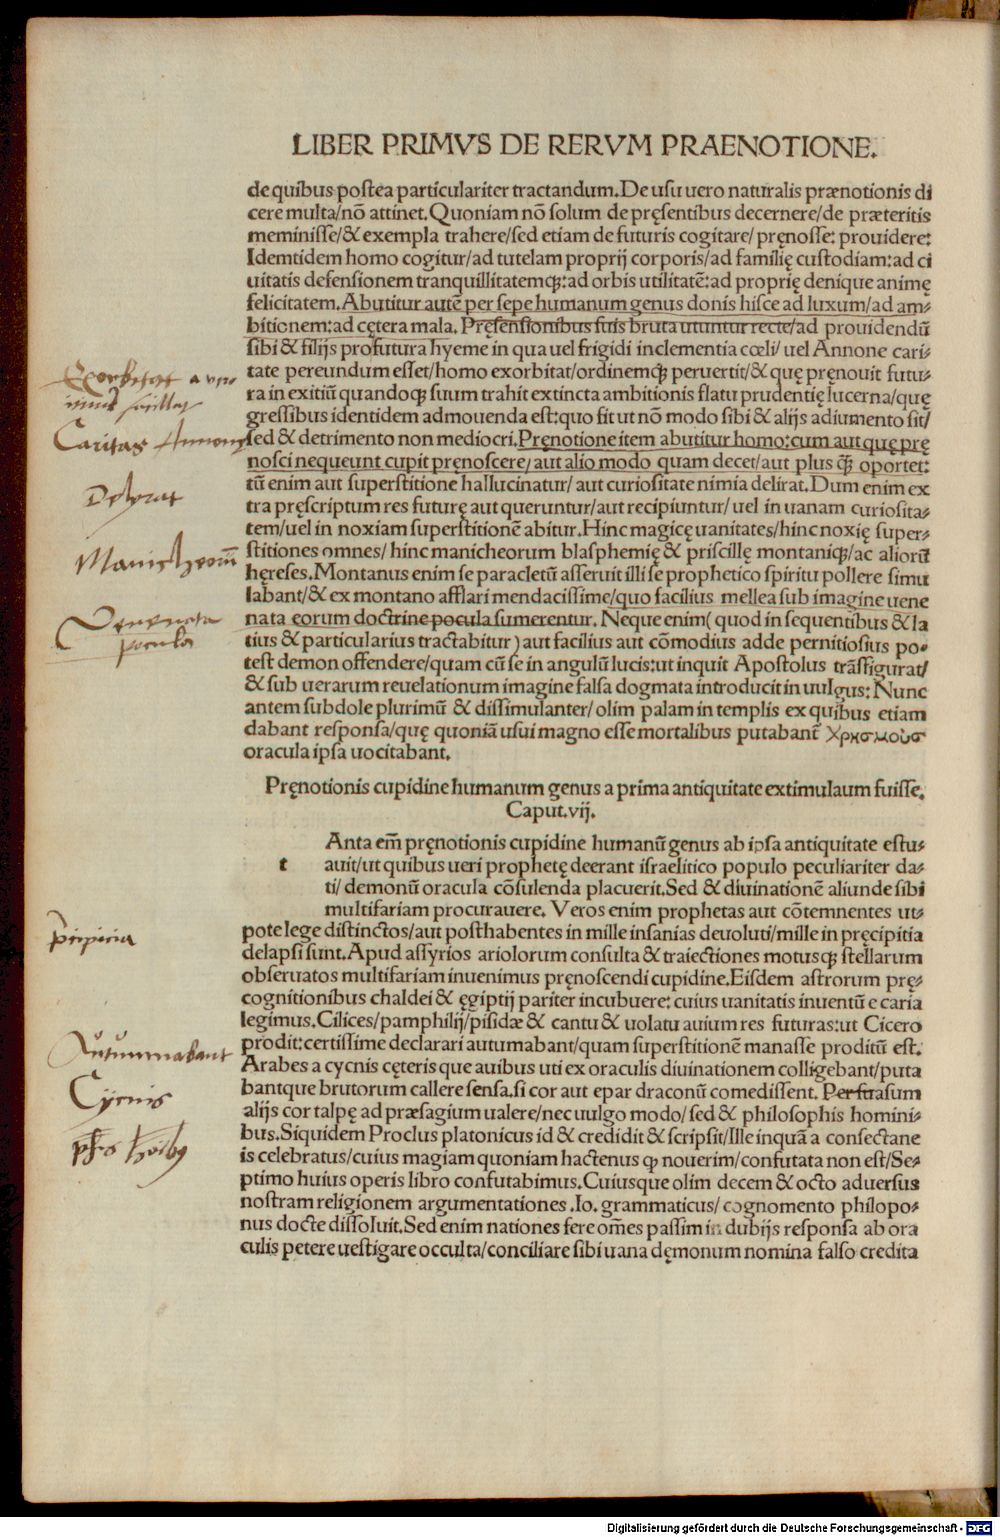 LIBER PRIMVS DE RERVM PRAENOTIONE.
de quibus postea particulariter tractandum. De usu uero naturalis prænotionis di
cere multa/nõ attinet. Quoniam nõ solum de pręsentibus decernere/de præteritis
meminisse/& exempla trahere/sed etiam de futuris cogitare/ pręnosse: prouidere:
Idemtidem homo cogitur/ad tutelam proprij corporis/ad familię custodiam:ad ci
uitatis defensionem tranquillitatemqꝫ:ad orbis utilitatẽ:ad proprię denique animę
felicitatem. Abutitur autẽ per sepe humanum genus donis hisce ad luxum/ad am-
bitionem:ad cętera mala. Pręsensionibus suis bruta utuntur recte/ad prouidendũ
sibi & filijs profutura hyeme in qua uel frigidi inclementia cœli/ uel Annone cari-
tate pereundum esset/homo exorbitat/ordinemqꝫ peruertit/& quę pręnouit futu-
ra in exitiũ quandoqꝫ suum trahit extincta ambitionis flatu prudentię lucerna/quę
gressibus identidem admouenda est:quo fit ut nõ modo sibi & alijs adiumento sit/
sed & detrimento non mediocri. Pręnotione item abutitur homo:cum aut quę prę
nosci nequeunt cupit pręnoscere/ aut alio modo quam decet/aut plus qꝫ̃ oportet:
tũ enim aut superstitione hallucinatur/ aut curiositate nimia delirat. Dum enim ex
tra pręscriptum res futurę aut queruntur/aut recipiuntur/ uel in uanam curiosita-
tem/uel in noxiam superstitionẽ abitur. Hinc magicę uanitates/hinc noxię super-
stitiones omnes/ hinc manicheorum blasphemię & priscillę montaniqꝫ/ac aliorũ
hęreses. Montanus enim se paracletũ asseruit illi se prophetico spiritu pollere simu
labant/& ex montano afflari mendacissime/quo facilius mellea sub imagine uene
nata eorum doctrine pocula sumerentur. Neque enim( quod in sequentibus & la
tius & particularius tractabitur ) aut facilius aut cõmodius adde pernitiosius po-
test demon offendere/quam cũ se in angulũ lucis:ut inquit Apostolus trãsfigurat/
& sub uerarum reuelationum imagine falsa dogmata introducit in uulgus: Nunc
antem subdole plurimũ & dissimulanter/ olim palam in templis ex quibus etiam
dabant responsa/quę quoniã usui magno esse mortalibus putabant̃ χρησμοὺσ
oracula ipsa uocitabant.
Pręnotionis cupidine humanum genus a prima antiquitate extimulaum fuisse.
Caput.vij.
Anta em̃ pręnotionis cupidine humanũ genus ab ipsa antiquitate estu-
t auit/ut quibus ueri prophetę deerant israelitico populo peculiariter da-
ti/ demonũ oracula cõsulenda placuerit. Sed & diuinationẽ aliunde sibi
multifariam procurauere. Veros enim prophetas aut cõtemnentes ut-
pote lege distinctos/aut posthabentes in mille insanias deuoluti/mille in pręcipitia
delapsi sunt. Apud assyrios ariolorum consulta & traiectiones motusqꝫ stellarum
obseruatos multifariam inuenimus pręnoscendi cupidine. Eisdem astrorum prę-
cognitionibus chaldei & ęgiptij pariter incubuere: cuius uanitatis inuentũ e caria
legimus. Cilices/pamphilij/pisidæ & cantu & uolatu auium res futuras:ut Cicero
prodit:certissime declarari autumabant/quam superstitionẽ manasse proditũ est.
Arabes a cycnis cęteris que auibus uti ex oraculis diuinationem colligebant/puta
bantque brutorum callere sensa. si cor aut epar draconũ comedissent. Persuasum
alijs cor talpę ad præsagium ualere/nec uulgo modo/ sed & philosophis homini-
bus. Siquidem Proclus platonicus id & credidit & scripsit/Ille inquã a consectane
is celebratus/cuius magiam quoniam hactenus qꝫ nouerim/confutata non est/Se-
ptimo huius operis libro confutabimus. Cuiusque olim decem & octo aduersus
nostram religionem argumentationes .Io. grammaticus/ cognomento philopo-
nus docte dissoluit. Sed enim nationes fere om̃es passim in dubijs responsa ab ora
culis petere uestigare occulta/conciliare sibi uana dęmonum nomina falso credita
Exorbitat
Caritas Annonę
Delyrat
Manicheorũ
Venenata
pocula
Prȩcipicia
Autummabant
Cycnis
Digitalisierung gefördert durch die Deutsche Forschungsgemeinschaft - DFG